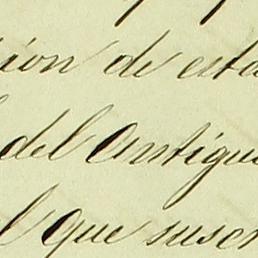 ion de esta
del Antigu
l que suscr